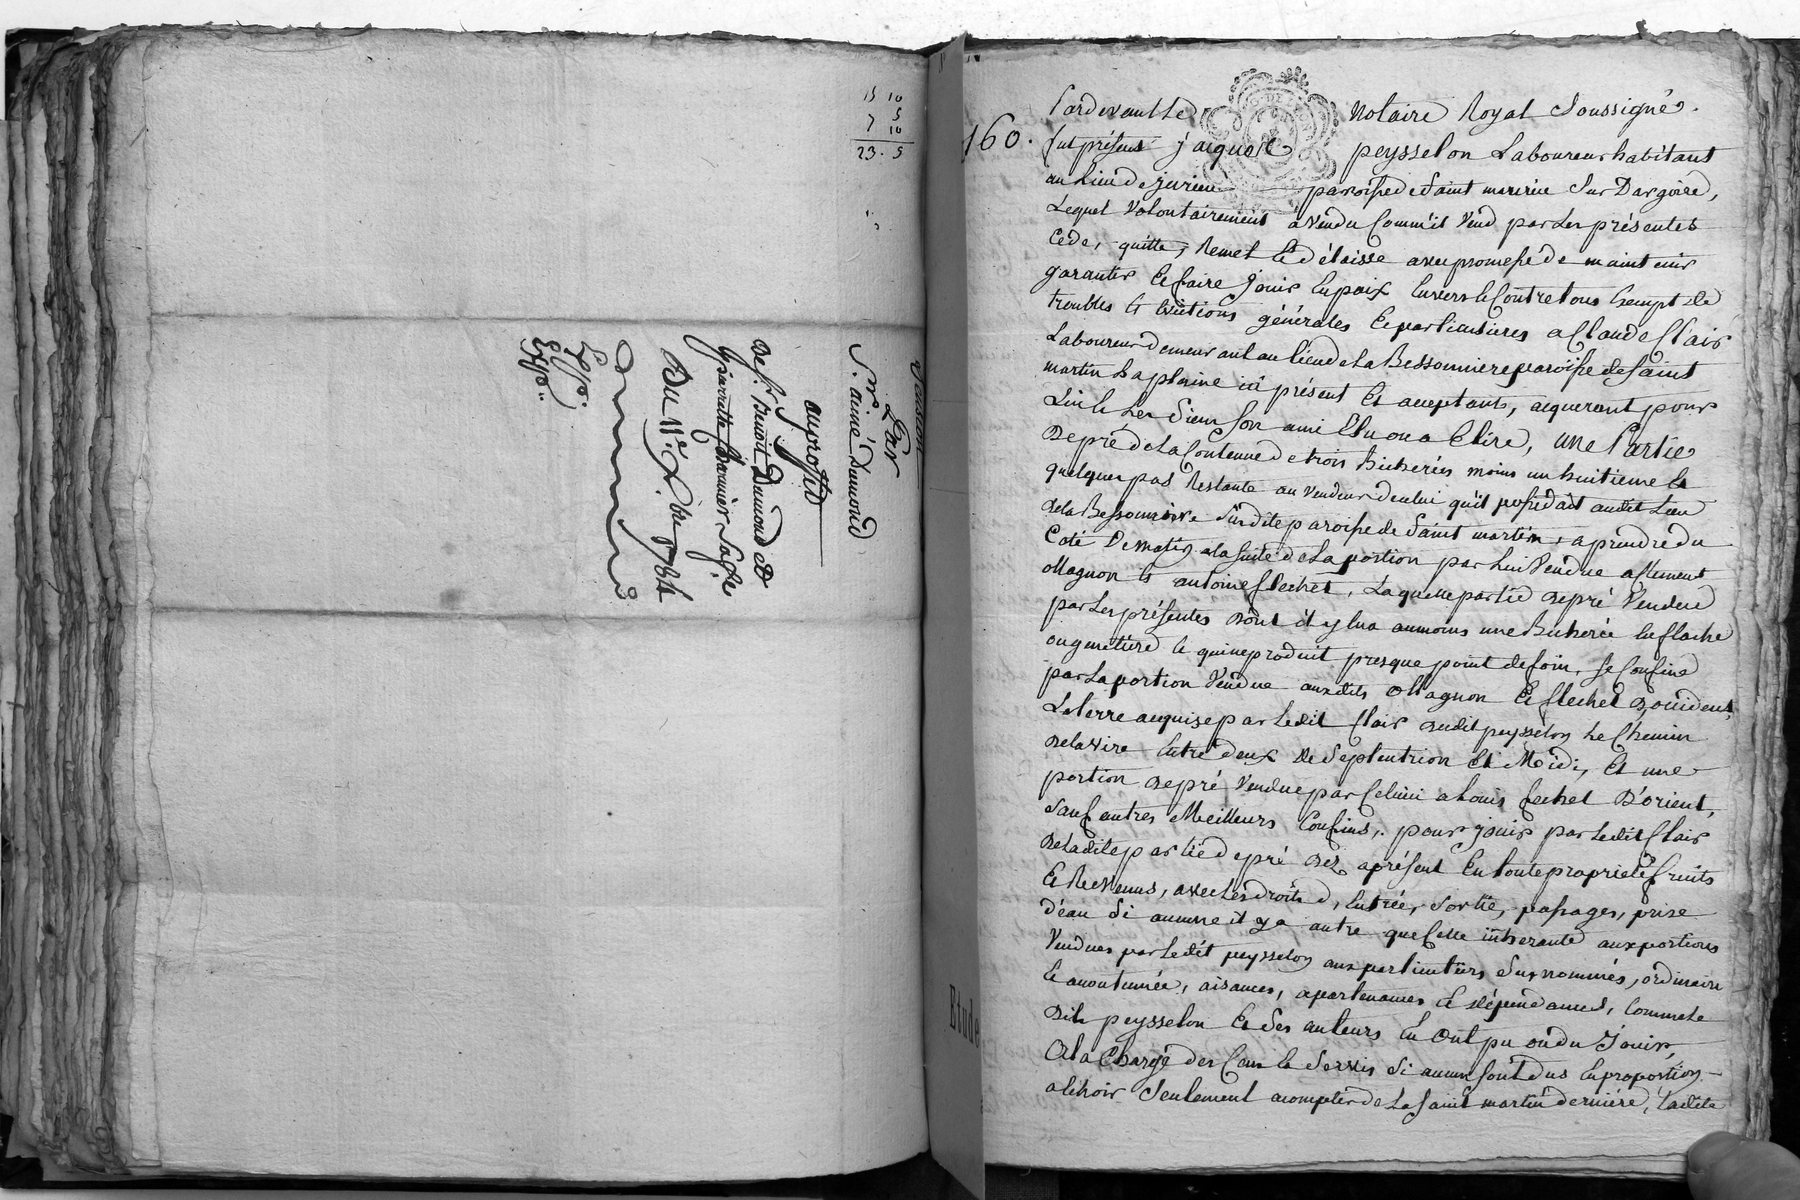 15 10
7 5
10
23. 5
Pension
Par
Sr. aimé dumond
au proffit
Des. Benoit Dumond et
pierrette Channier Sa fe
Du 11e. Xbre 1784
Exp.
Exp.
160.
Pardevant Le Notaire Royal Soussigné.
fut présent jacques peysselon Laboureur habitant
au Lieu de jurieu paroisse de Saint maurice Sur Dargoire,
Lequel Volontairement a Vendu Comm'il Vend par Les présentes
Cede, quitte, Remet et délaisse avec promesse de maintenir
garantir et faire jouir En paix Envers et Contre tous Exempt de
troubles et Evictions générales et particulieres a Claude Clair
Laboureur demeurant au Lieu de La Bessonniere paroisse de Saint
martin La plaine ici présent Et acceptant, acquerant pour
Lui et Les Siens Son ami Elu ou a Elire, une Partie
De pré de La Contenue de trois Bicherées moins un huitieme et
quelques pas Restante au Vendeur de celui qu'il possedait audit Lieu
de La Bessonniere Susdite paroisse de Saint martin, a prendre du
Coté De matin a la Suite de La portion par Lui Vendue a Clement
Magnon et antoine flechet, Laquelle partie de pré Vendue
par Les présentes dont il y En a aumoins une Bicherée En flache
ou gouttiere et qui ne produit presque point de foin, Se Confine
par La portion Vendue auxdits Magnon Et flechet D'occident,
La terre acquise par Ledit Clair dudit peysselon Le Chemin
de La Vire Entre deux De Septentrion Et Midi, Et une
portion de pré Vendue par Celuici a Louis fechet D'orient,
Sauf autres Meilleurs Confins, pour jouir par Ledit Clair
De Ladite partie de pré Dez aprésent En toute proprieté fruits
Et Revenus, avec Les droits d'Entrée, Sortie, passages, prise
d'eau Si aucune il y a autre que Celle inherante aux portions
Vendues par Ledit peysselon aux particuliers Susnommés, ordinaire
Et accoutumée, aisances, apartenances Et dépendances, Comme Le
Dit peysselon Et Ses auteurs En ont pu ou du Jouir,
a La Charge des Cens et Servis Si aucuns Sont dus En proportion
a Echoir Seulement acompter de La Saint martin derniere, Ladite
Etude